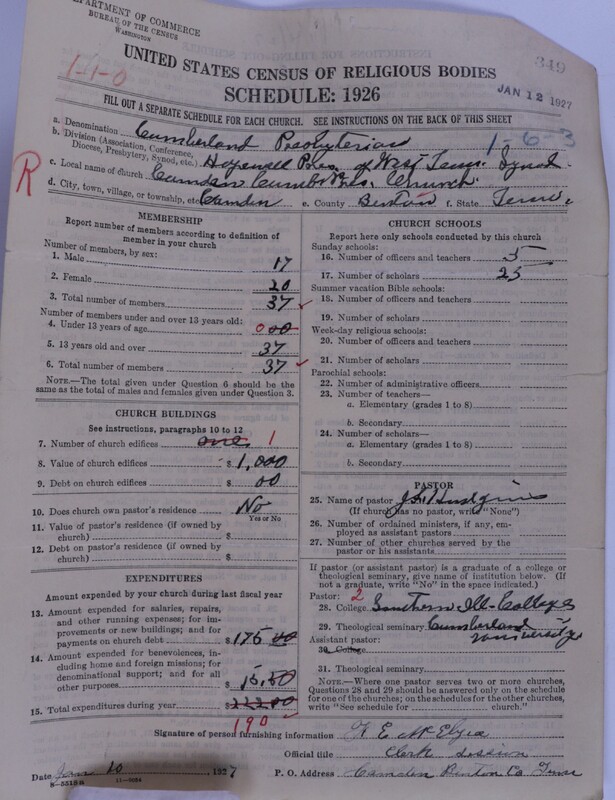 DEPARTMENT OF COMMERCE
BUREAU OF THE CENSUS
WASHINGTON
349
JAN 12 1927
UNITED STATES CENSUS OF RELIGIOUS BODIES
SCHEDULE: 1926
1-1-0
FILL OUT A SEPARATE SCHEDULE FOR EACH CHURCH. SEE INSTRUCTIONS ON THE BACK OF THIS SHEET
1-6-3
R
a. Denomination Cumberland Presbyterian
b. Division (Association, Conference, Diocese, Presbytery, Synod, etc.) Hopewell Pres. of West Tenn. Synod
c. Local name of church Camden Cumb. Pres. Church
d. City, town, village, or township, etc. Camden e. County Benton f. State Tenn.
MEMBERSHIP
Report number of members according to definition of member in your church
Number of members, by sex:
1. Male 17
2. Female 20
3. Total number of members 37
Number of members under and over 13 years old:
4. Under 13 years of age 000
5. 13 years old and over 37
6. Total number of members 37
NOTE.—The total given under Question 6 should be the same as the total of males and females given under Question 3.
CHURCH BUILDINGS
See instructions, paragraphs 10 to 12
7. Number of church edifices one 1
8. Value of church edifices $1,000
9. Debt on church edifices $ 00
10. Does church own pastor's residence No
Yes or No
11. Value of pastor's residence (if owned by church) $
12. Debt on pastor's residence (if owned by church) $
EXPENDITURES
Amount expended by your church during last fiscal year
13. Amount expended for salaries, repairs, and other running expenses; for improvements or new building; and for payments on church debt $175 00
14. Amount expended for benevolences, including home and foreign missions; for denominational support; and for all other purposes $15.50
15. Total expenditures during year $
190
CHURCH SCHOOLS
Report here only schools conducted by this church
Sunday schools:
16. Number of officers and teachers 5
17. Number of scholars 25
Summer vacation Bible schools:
18. Number of officers and teachers
19. Number of scholars
Week-day religious schools:
20. Number of officers and teachers
21. Number of scholars
Parochial schools:
22. Number of administrative officers
23. Number of teachers—
a. Elementary (grades 1 to 8)
b. Secondary
24. Number of scholars—
a. Elementary (grades 1 to 8)
b. Secondary
PASTOR
25. Name of pastor
(If church has no pastor, write "None")
26. Number of ordained ministers, if any, employed as assistant pastors
27. Number of other churches served by the pastor or his assistants
If pastor (or assistant pastor) is a graduate of a college or theological seminary, give name of institution below. (If not a graduate, write "No" in the space indicated.)
Pastor: 2
28. College Southern Ill. College
29. Theological seminary Cumberland University
Assistant pastor:
30. College
31. Theological seminary
NOTE.—Where one pastor serves two or more churches, Questions 28 and 29 should be answered only on the schedule for one of the churches; on the schedules for the other churches, write "See schedule for church."
Signature of person furnishing information
Official title Clerk Session
Date Jan 10, 1927
P. O. Address Camden Benton Co Tenn
8-5519a 11-9084